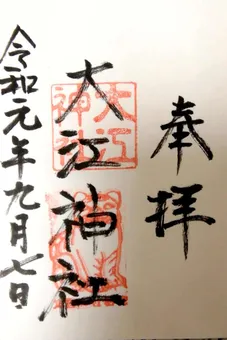 奉拝
大江神社
大江神社
令和元年九月七日